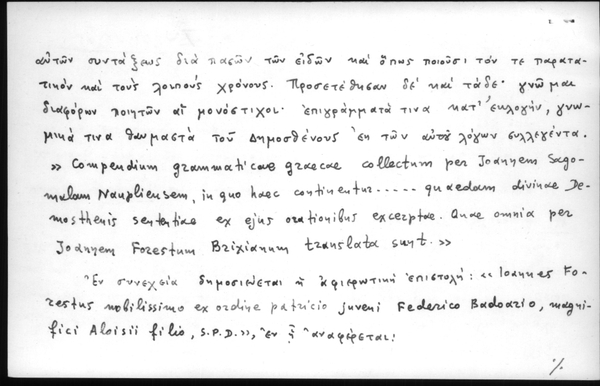 αὐτῶν συντάξεως διὰ πασῶν τῶν εἰδῶν καὶ ὅπως ποιοῦσι τόν τε παρατα-
τικὸν καὶ τοὺς λοιποὺς χρόνους. Προσετέθησαν δὲ καὶ τάδε· γνῶμαι
διαφόρων ποιητῶν αἱ μονόστιχοι· ἐπιγράμματά τινα κατ' ἐκλογήν, γνω-
μικά τινα θαυμαστὰ τοῦ Δημοσθένους ἐκ τῶν αὐτοῦ λόγων συλλεγέντα.
» Compendium grammaticae graecae collectum per Joannem Sago-
malam Naupliensem, in quo haec continentur..... quaedam divinae De-
mosthenis sententiae ex ejus orationibus excerptae. Quae omnia per
Joannem Forestum Brixianum translata sunt. »»
Ἐν συνεχείᾳ δημοσιεύεται ἡ ἀφιερωτικὴ ἐπιστολή: «Ioannes Fo-
restus nobilissimo ex ordine patricio juveni Federico Badoario, magni-
fici Aloisii filio, S.P.D.», ἐν ᾗ ἀναφέρεται:
./.